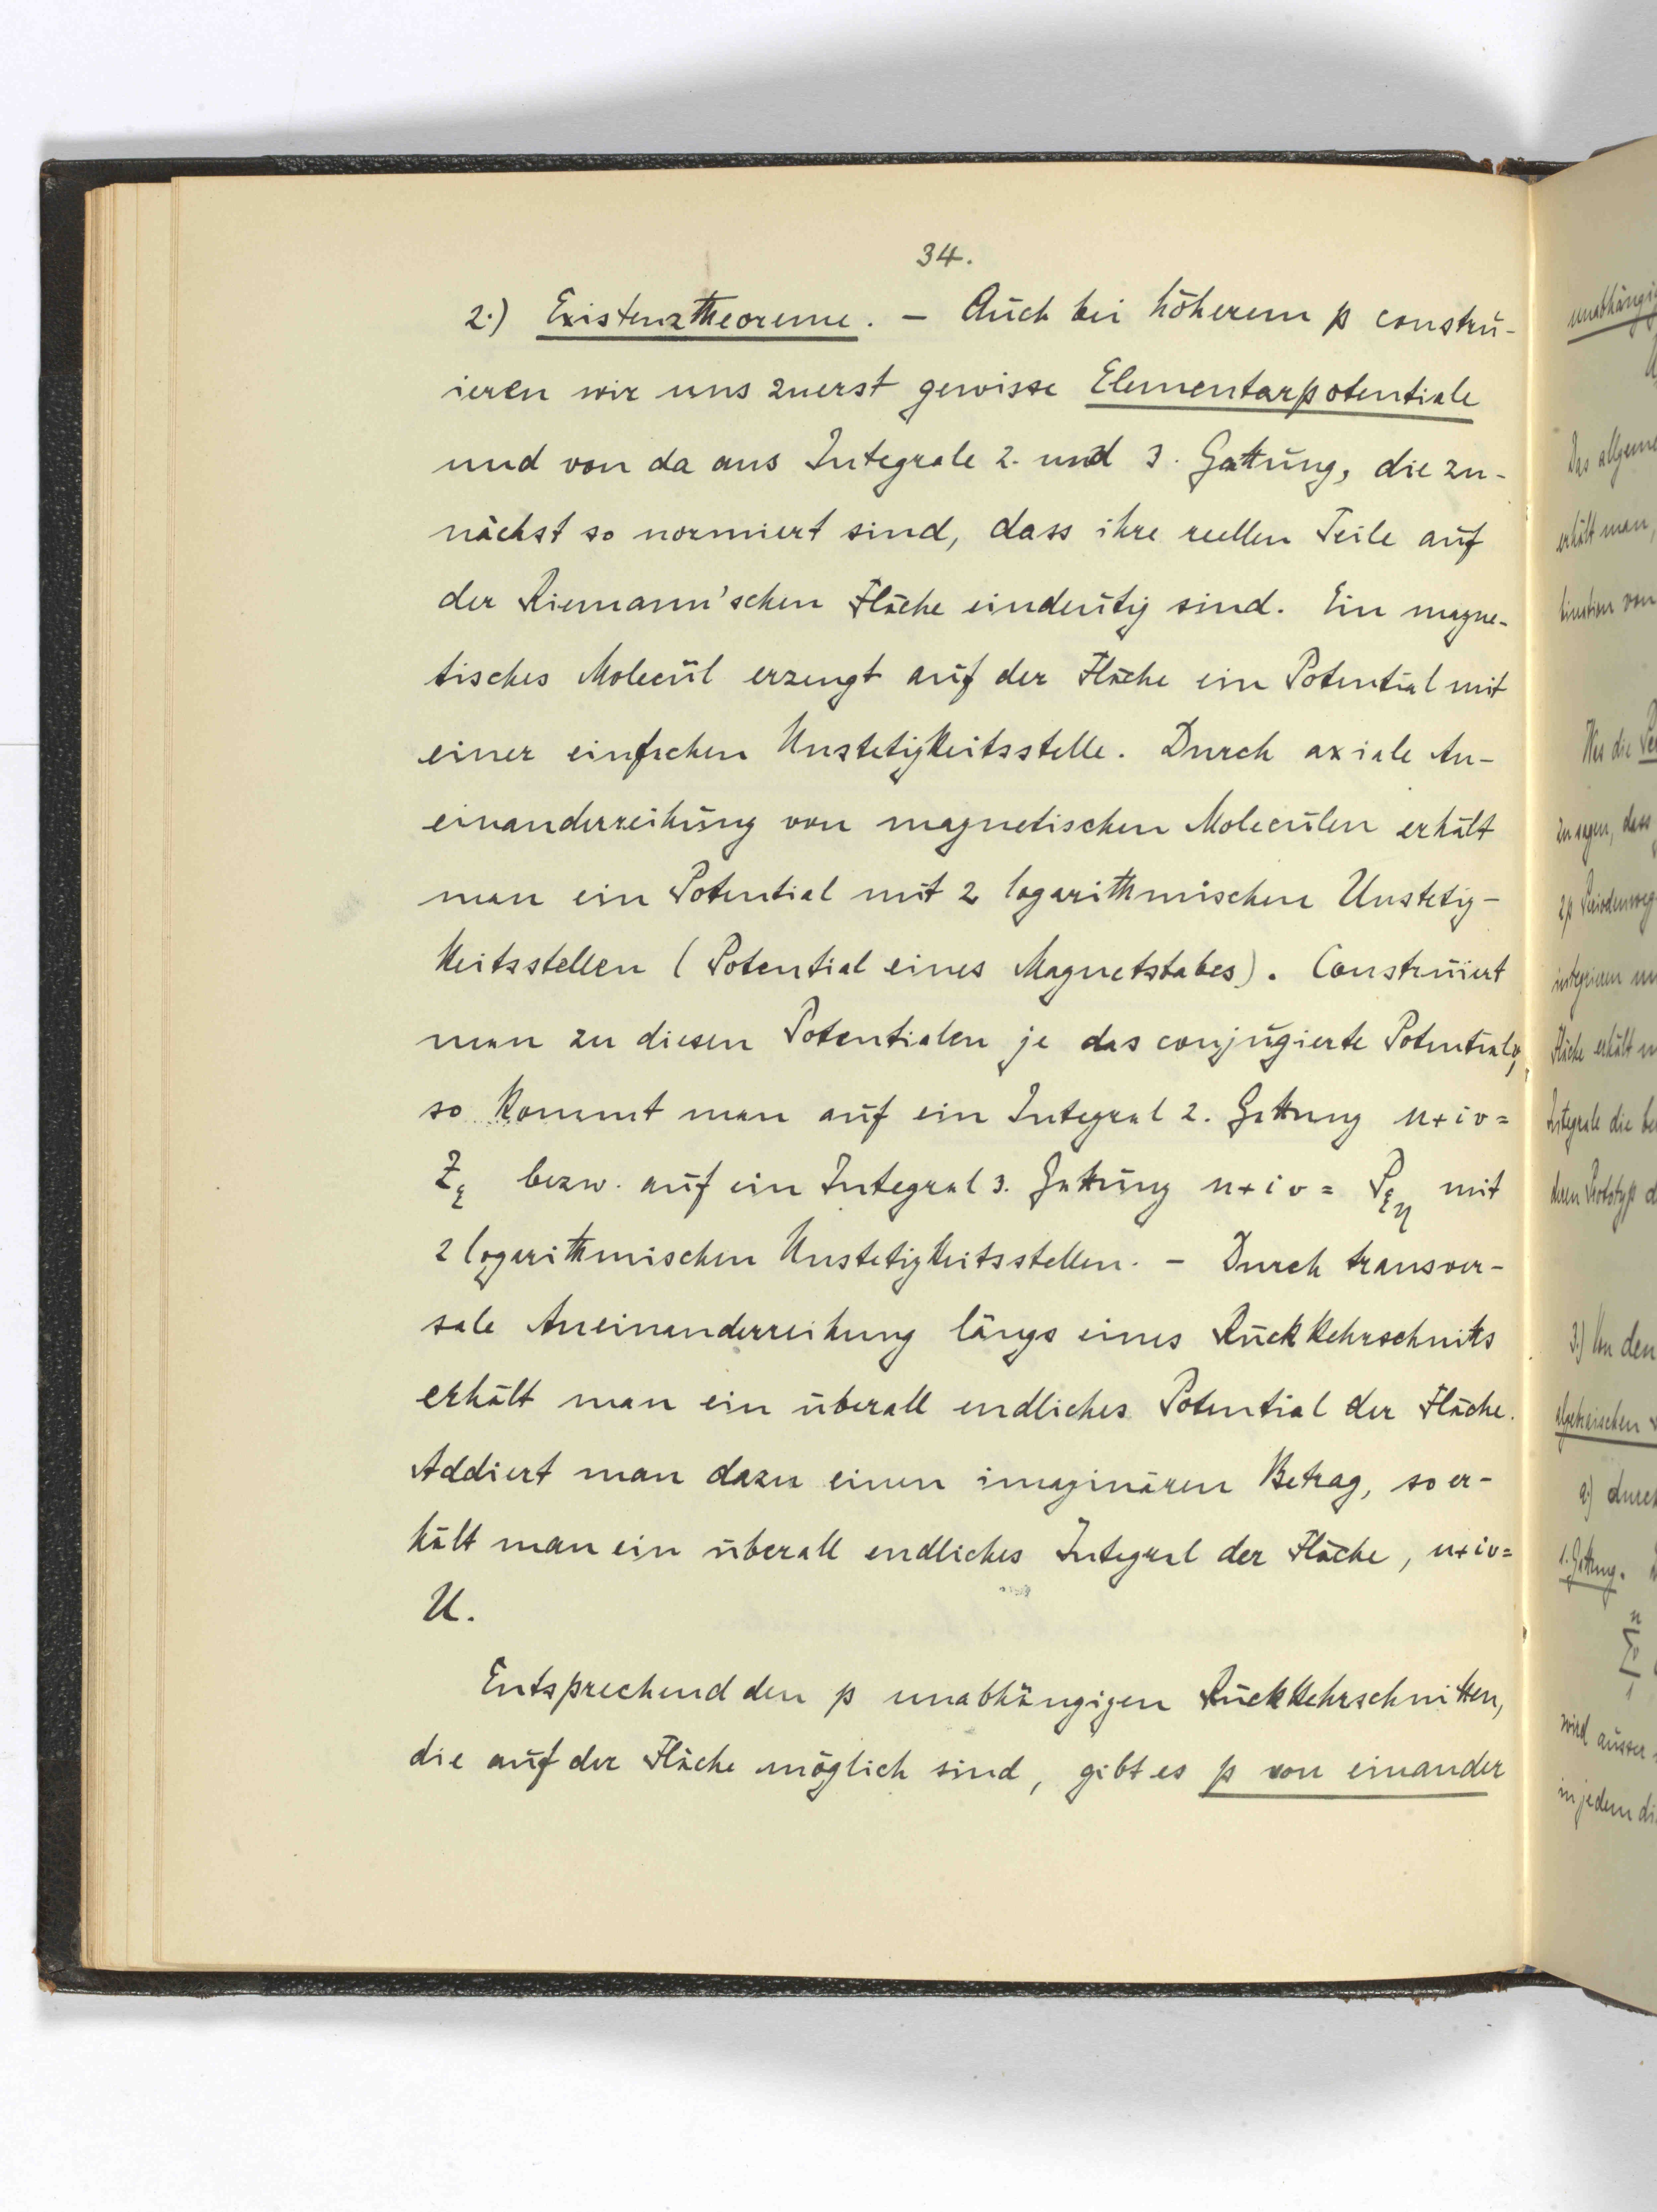 34.
2.) Existenztheoreme. – Auch bei höherem p constru-
ieren wir uns zuerst gewisse Elementarpotentiale
und von da aus Integrale 2. und 3. Gattung, die zu-
nächst so normiert sind, dass ihre reellen Teile auf
der Riemann'schen Fläche eindeutig sind. Ein magne-
tisches Molecül erzeugt auf der Fläche ein Potential mit
einer einfachen Unstetigkeitsstelle. Durch axiale An-
einanderreihung von magnetischen Molecülen erhält
man ein Potential mit 2 logarithmischen Unstetig-
keitsstellen (Potential eines Magnetstabes). Construiert
man zu diesen Potentialen je das conjugierte Potential,
so kommt man auf ein Integral 2. Gattung u+iv=
Z_ξ bezw. auf ein Integral 3. Gattung u+iv= P_ξη mit
2 logarithmischen Unstetigkeitsstellen. – Durch transver-
sale Aneinanderreihung längs eines Rückkehrschnitts
erhält man ein überall endliches Potential der Fläche.
Addiert man dazu einen imaginären Betrag, so er-
hält man ein überall endliches Integral der Fläche, u+iv=
U.
Entsprechend den p unabhängigen Rückkehrschnitten,
die auf der Fläche möglich sind, gibt es p von einander
unabhängig
Das allgeme
erhält man,
bination von
Was die Pe
zu sagen, dass
2p Periodenweg
integrieren
Fläche erhält
Integrale die be
deren Prototyp d
3.) Von den
algebraischen
a) durch
1. Gattung.
wird ausser
in jedem di